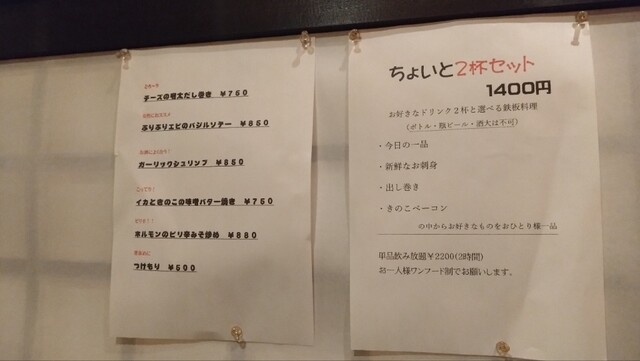 チーズの明太だし巻き ￥750
ぷりぷりエビのバジルソテー ￥850
ガーリックシュリンプ ￥850
イカときのこの味噌バター焼き ￥750
ホルモンのピリ辛みそ炒め ￥880
つけもり ￥500
ちょいと2杯セット
1400円
お好きなドリンク2杯と選べる鉄板料理
(ボトル・瓶ビール・酒大は不可)
・今日の一品
・新鮮なお刺身
・出し巻き
・きのこベーコン
の中からお好きなものをおひとり様一品
単品飲み放題￥2200(2時間)
お一人様ワンフード制でお願いします。